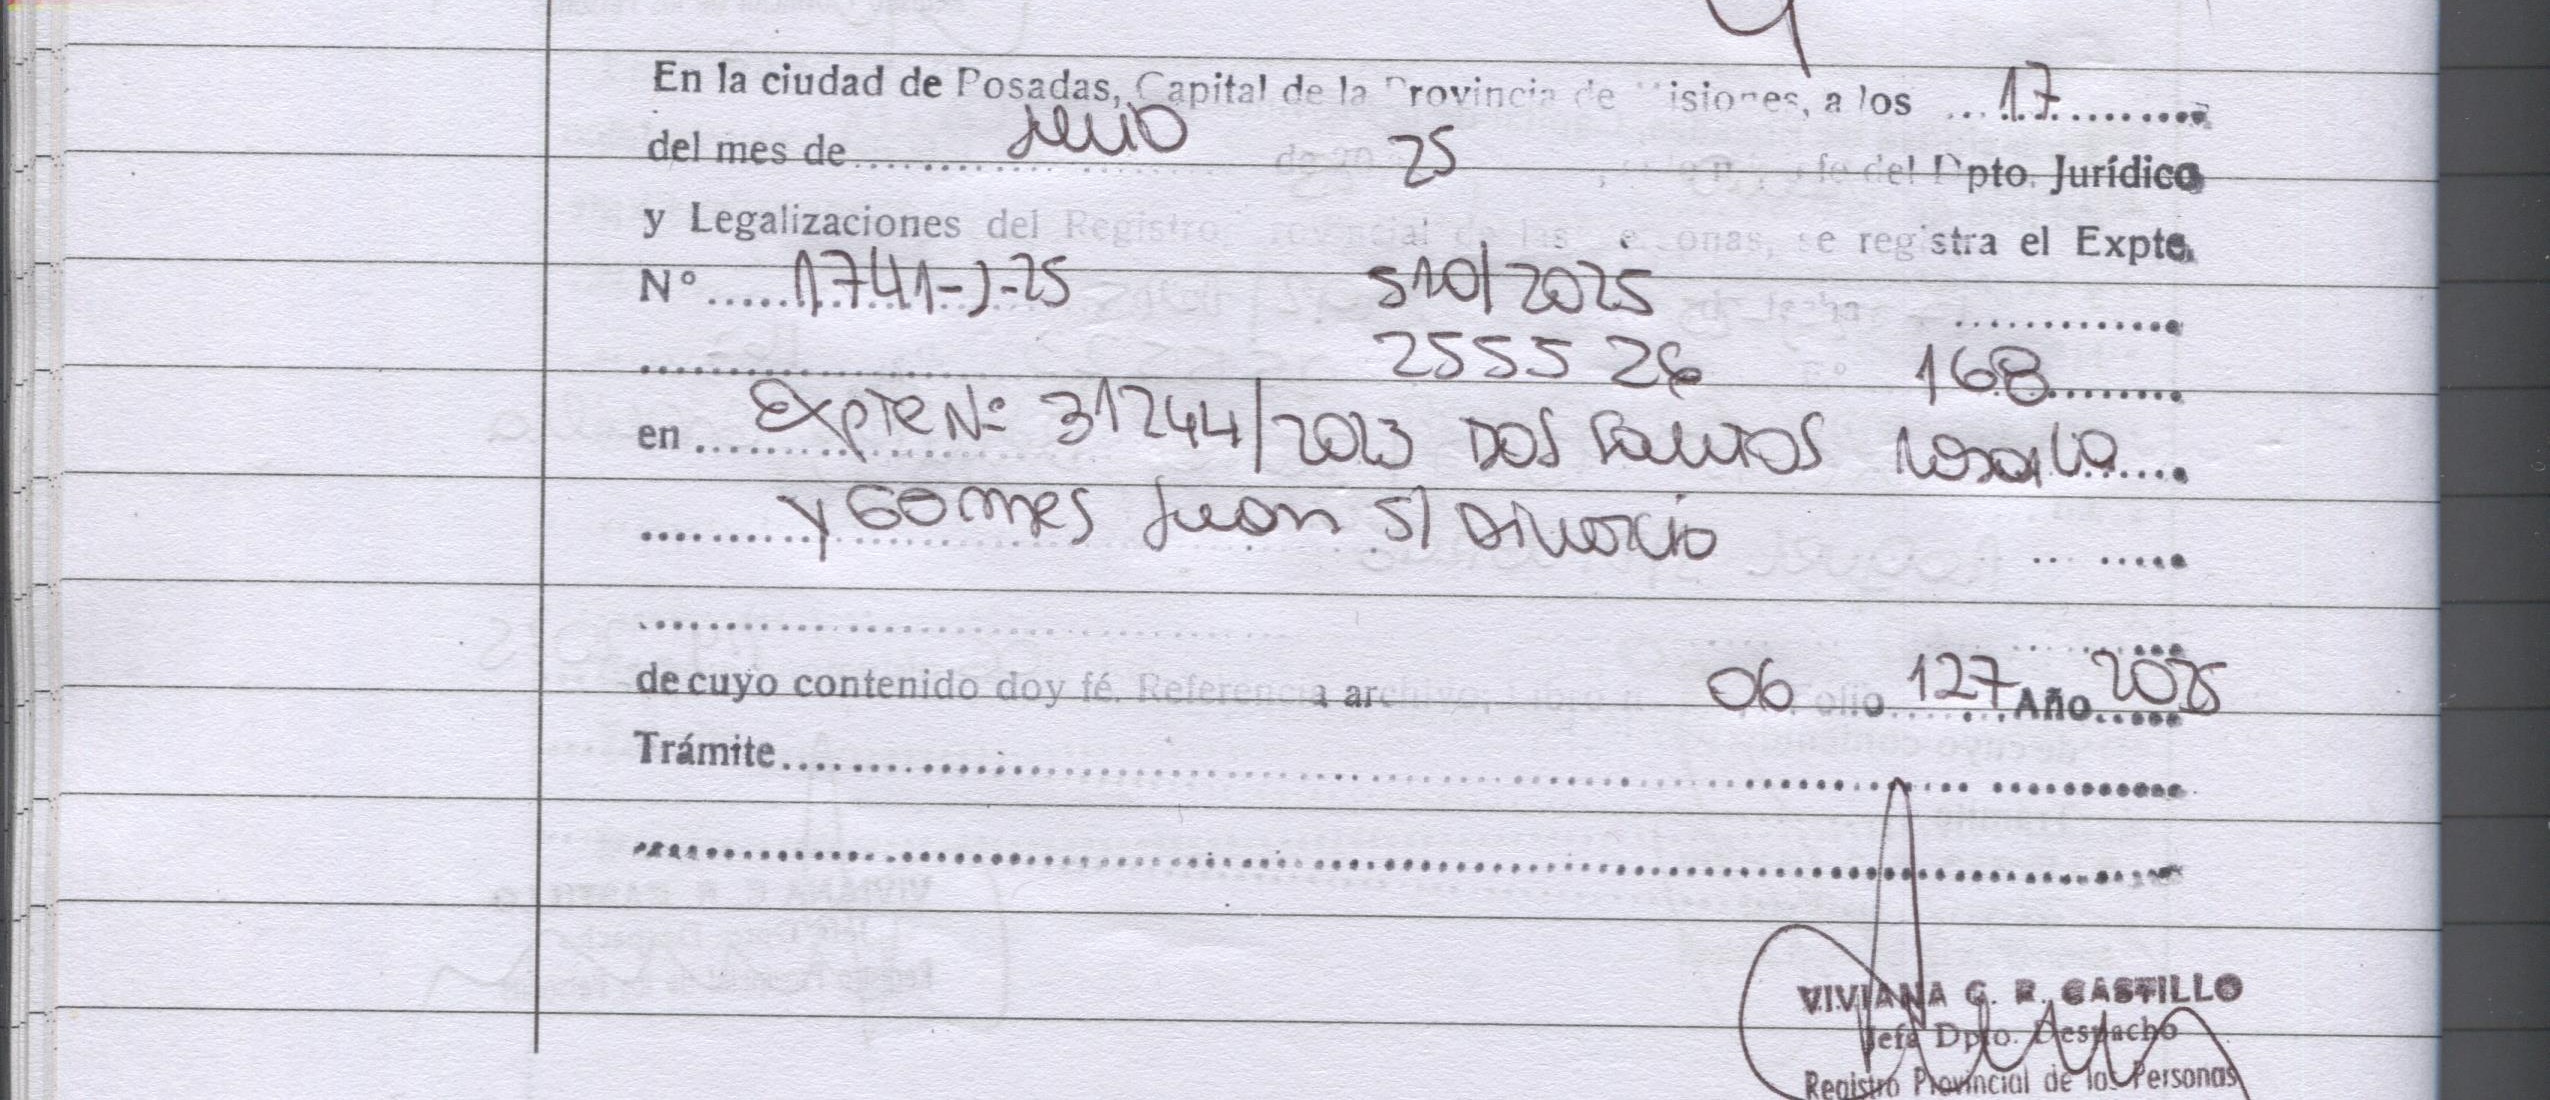 En la ciudad de Posadas, Capital de la Provincia de Misiones, a los ... 17 ........
del mes de ........ Julio 25 Jefe del Dpto. Jurídico
y Legalizaciones del Registro Provincial de las Personas, se registra el Expte.
N° ..... 1741-J-25 510/2025 .............
................ 255526 168 ........
en ... Expte Nº 31244/2023 DOS Santos Rosalia ....
......... y Gomes Juan S/ Divorcio .. .....
de cuyo contenido doy fé. Referencia archivo; Libro 06 Folio 127 Año 2025
Trámite ..............................
VIVIANA G. R. CASTILLO
Jefa Dpto. Despacho
Registro Provincial de las Personas